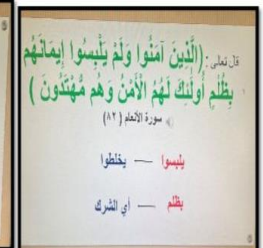 قال تعالى: (الَّذِينَ آمَنُوا وَلَمْ يَلْبِسُوا إِيمَانَهُم
بِظُلْمٍ أُولَئِكَ لَهُمُ الْأَمْنُ وَهُم مُّهْتَدُونَ )
سورة الأنعام ( ٨٢)
يلبسوا — يخلطوا
بظلم — أي الشرك